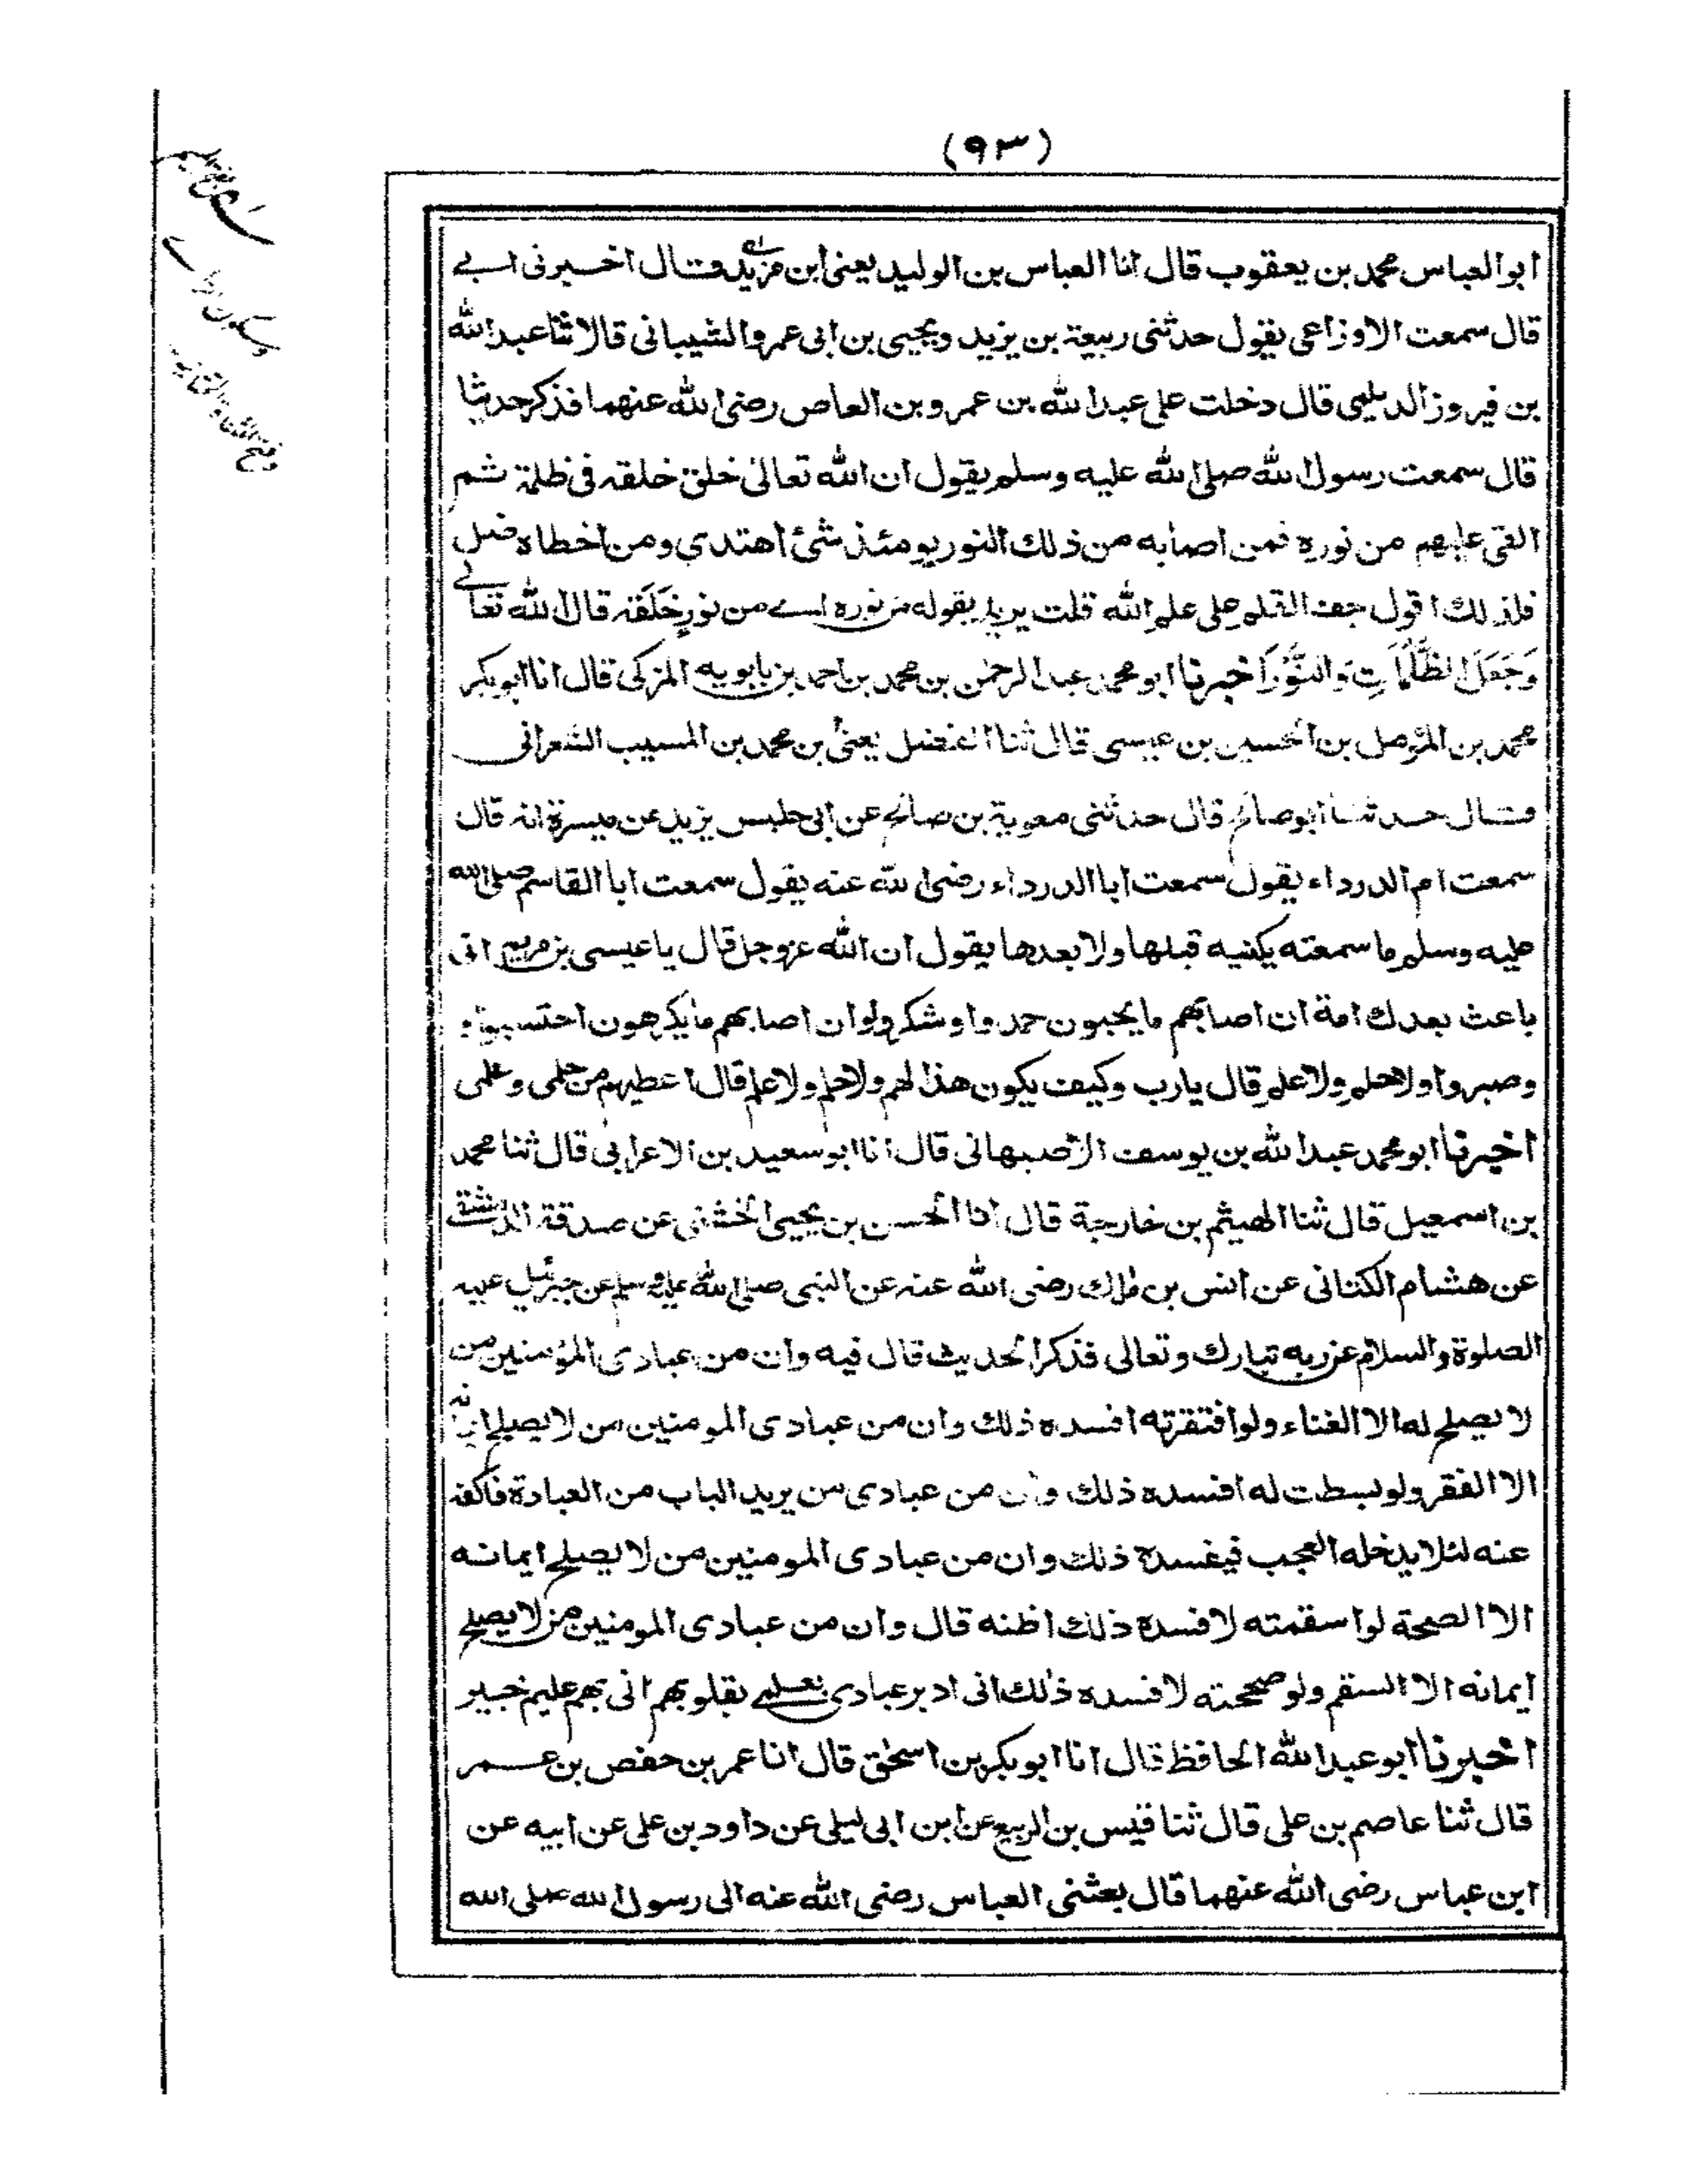 (٩٣)
ابو العباس محمد بن يعقوب قال انا العباس بن الوليد يعنى ابن مزيد قال اخبرنى ابي
قال سمعت الاوزاعى يقول حدثنى ربيعة بن يزيد ويحيى بن ابى عمرو الشيبانى قالا ثنا عبد الله
بن فيروز الديلمى قال دخلت على عبد الله بن عمرو بن العاص رضى الله عنهما فذكر حديثا
قال سمعت رسول الله صلى الله عليه وسلم يقول ان الله تعالى خلق خلقه فى ظلمة ثم
القى عليهم من نوره فمن اصابه من ذلك النور يومئذ شئ اهتدى ومن اخطاه ضل
فلذلك اقول جف القلم على علم الله قلت يريد بقوله من نوره اے من نور خَلَقَه قال الله تعالے
وَجَعَلَ الظُّلُمَاتِ وَالنُّوْرَ اخبرنا ابو محمد عبد الرحمن بن محمد بن احمد بن بابويه المزكى قال انا ابو بكر
محمد بن المؤمل بن الحسين بن عيسى قال ثنا الفضل يعنى بن محمد بن المسيب الشعرانى
قال حدثنا ابو صالح قال حدثنى معوية بن صالح عن ابى حلبس يزيد عن ميسرة انه قال
سمعت ام الدرداء يقول سمعت ابا الدرداء رضى الله عنه يقول سمعت ابا القاسم صلى الله
عليه وسلم ما سمعته يكنيه قبلها ولا بعدها يقول ان الله عزوجل قال يا عيسى بن مريم انى
باعث بعدك امة ان اصابهم ما يحبون حمدوا وشكروا وان اصابهم ما يكرهون احتسبوا و
وصبروا ولا حلم ولا علم قال يارب وكيف يكون هذا لهم ولا حلم ولا علم قال اعطيهم من حلمى وعلمى
اخبرنا ابو محمد عبد الله بن يوسف الاصبهانى قال انا ابو سعيد بن الاعرابى قال ثنا محمد
بن اسمعيل قال ثنا الهيثم بن خارجة قال انا الحسن بن يحيى الخشنى عن صدقة الدمشقے
عن هشام الكتانى عن انس بن مٰلك رضى الله عنه عن النبى صلى الله عليه وسلم عن جبرئيل عليه
الصلوة والسلام عن ربه تبارك وتعالى فذكر الحديث قال فيه وان من عبادى المؤمنين من
لا يصلح له الا الغناء ولو افتقرته افسده ذلك وان من عبادى المومنين من لا يصلح ايمانه
الا الفقر ولو بسطت له افسده ذلك وان من عبادى من يريد الباب من العبادة فاكفه
عنه لئلا يدخله العجب فيفسده ذلك وان من عبادى المومنين من لا يصلح ايمانه
الا الصحة لو اسقمته لافسده ذلك اظنه قال وان من عبادى المومنين من لا يصلح
ايمانه الا السقم ولو صححته لافسده ذلك انى ادبر عبادى بعلمے بقلوبهم انى بهم عليم خبير
اخبرنا ابو عبد الله الحافظ قال انا ابو بكر بن اسحٰق قال انا عمر بن حفص بن عمر
قال ثنا عاصم بن على قال ثنا قيس بن الربيع عن ابن ابى ليلى عن داود بن على عن ابيه عن
ابن عباس رضى الله عنهما قال بعثنى العباس رضى الله عنه الى رسول الله صلى الله